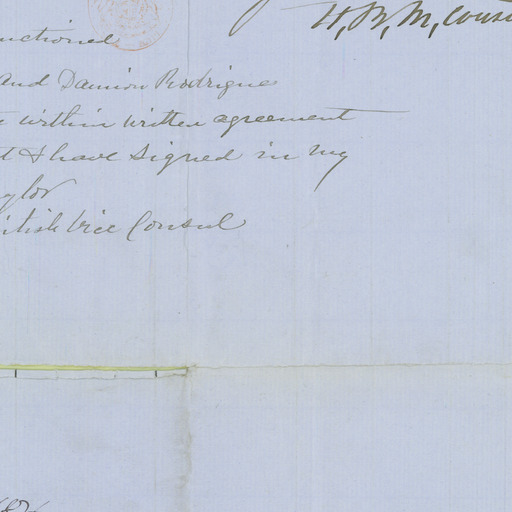 H, B, M, Consu
nctioned
and Damion Rodrigue
within written agreement
t & have signed in my
ylor
itish Vice Consul